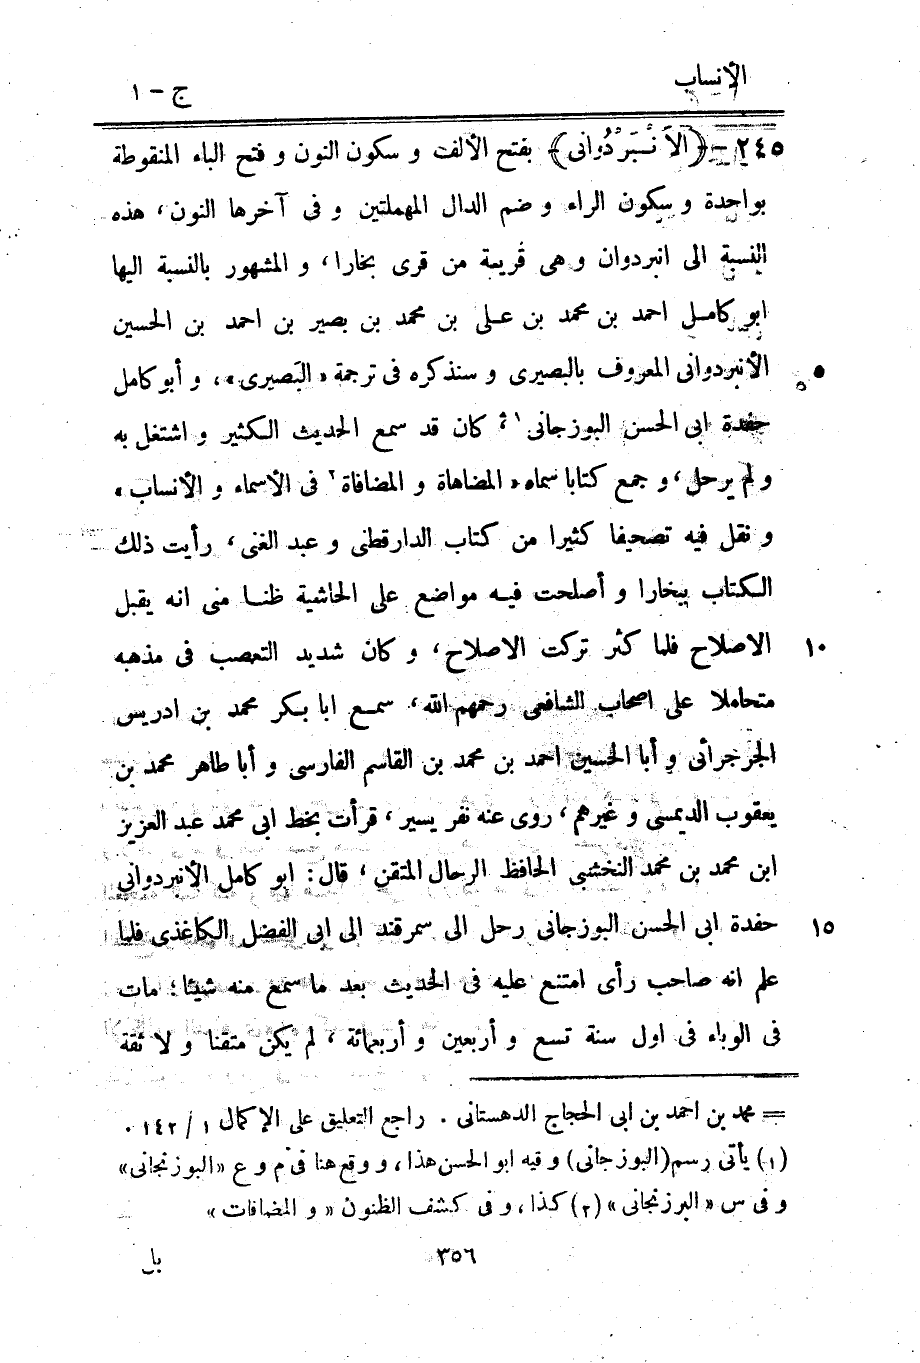 الأنساب
ج - ١
٢٤٥ - ﴿الأَنْبَرْدُوانى﴾ بفتح الألف و سكون النون و فتح الباء المنقوطة
بواحدة و سكون الراء و ضم الدال المهملتين و فى آخرها النون، هذه
النسبة الى انبردوان و هى قرية من قرى بخارا، و المشهور بالنسبة اليها
ابو كامل احمد بن محمد بن على بن محمد بن بصير بن احمد بن الحسين
٥ الأنبردوانى المعروف بالبصيرى و سنذكره فى ترجمة «البَصيرى»، و أبو كامل
حفدة ابى الحسن البوزجانى١؛ كان قد سمع الحديث الكثير و اشتغل به
و لم يرحل، و جمع كتابا سماه «المضاهاة و المضافاة٢ فى الأسماء و الأنساب»
و نقل فيه تصحيفا كثيرا من كتاب الدارقطنى و عبد الغنى، رأيت ذلك
الكتاب ببخارا و أصلحت فيه مواضع على الحاشية ظنا منى انه يقبل
١٠ الاصلاح فلما كثر تركت الاصلاح، و كان شديد التعصب فى مذهبه
متحاملا على اصحاب الشافعى رحمهم الله، سمع ابا بكر محمد بن ادريس
الجرجرائى و أبا الحسين احمد بن محمد بن القاسم الفارسى و أبا طاهر محمد بن
يعقوب الديمسى و غيرهم، روى عنه نفر يسير، قرأت بخط ابى محمد عبد العزيز
ابن محمد بن محمد النخشبى الحافظ الرحال المتقن، قال: ابو كامل الأنبردوانى
١٥ حفدة ابى الحسن البوزجانى رحل الى سمرقند الى ابى الفضل الكاغذى فلما
علم انه صاحب رأى امتنع عليه فى الحديث بعد ما سمع منه شيئا؛ مات
فى الوباء فى اول سنة تسع و أربعين و أربعمائة، لم يكن متقنا و لا ثقة
= محمد بن احمد بن ابى الحجاج الدهستانى . راجع التعليق على الإكمال ١ / ١٤٢ .
(١) يأتى رسم (البوزجانى) و فيه ابو الحسن هذا، و وقع هنا فى م و ع «البوزنجانى»
و فى س «البرزنجانى» (٢) كذا، و فى كشف الظنون «و المضافات»
٣٥٦
بل